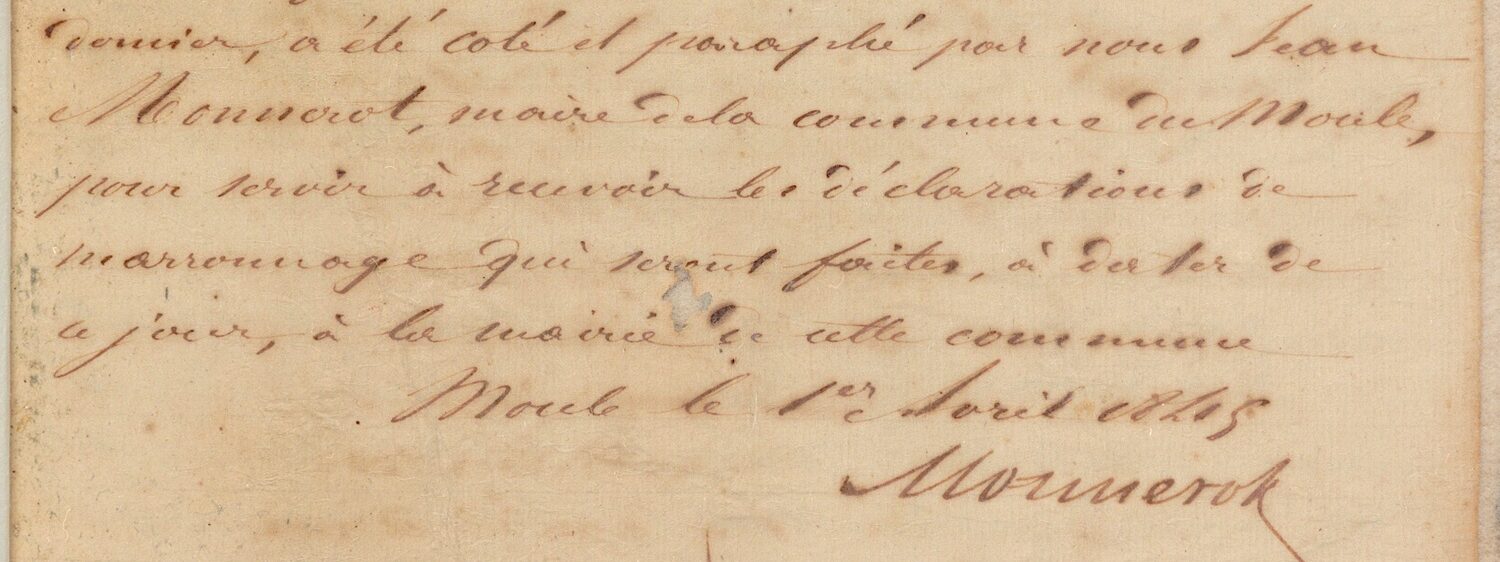 dernier, a été coté et paraphé par nous Jean
Monnerot, maire de la commune du Moule,
pour servir à recevoir les déclarations de
marronnage qui seront faites, à dater de
ce jour, à la mairie de cette commune
Moule le 1er Avril 1845
Monnerot